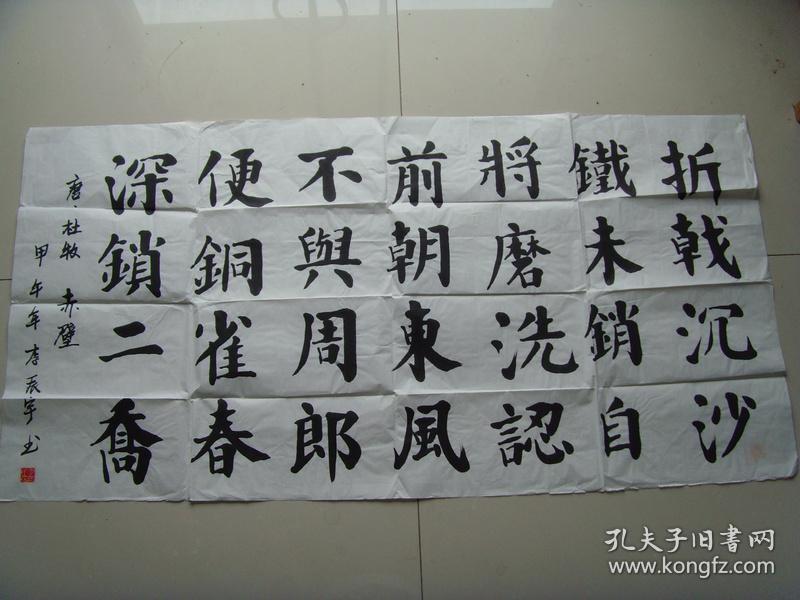 折戟沉沙
鐵未銷自
將磨洗認
前朝東風
不與周郎
便銅雀春
深鎖二喬
唐·杜牧 赤壁
甲午年李辰宇书
孔夫子旧书网
www.kongfz.com